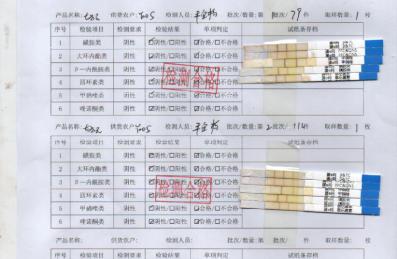 产品名称: 供货农户: 检测人员: 批次/数量:第 批次/ 79 件 取样数量: 1 枚
序号 检验项目 检测要求 检验结果 单项判定 试纸条存档
1 磺胺类 阴性 ☑阴性/□阳性 ☑合格/□不合格
2 大环内酯类 阴性 ☑阴性/□阳性 ☑合格/□不合格
3 β一内酰胺类 阴性 ☑阴性/□阳性 ☑合格/□不合格
4 四环素类 阴性 ☑阴性/□阳性 ☑合格/□不合格
5 甲硝唑类 阴性 ☑阴性/□阳性 ☑合格/□不合格
6 喹诺酮类 阴性 ☑阴性/□阳性 ☑合格/□不合格
检测合格
产品名称: 供货农户: 检测人员: 批次/数量:第 2 批次/ 件 取样数量: 1 枚
序号 检验项目 检测要求 检验结果 单项判定 试纸条存档
1 磺胺类 阴性 ☑阴性/□阳性 ☑合格/□不合格
2 大环内酯类 阴性 ☑阴性/□阳性 ☑合格/□不合格
3 β一内酰胺类 阴性 ☑阴性/□阳性 ☑合格/□不合格
4 四环素类 阴性 ☑阴性/□阳性 ☑合格/□不合格
5 甲硝唑类 阴性 ☑阴性/□阳性 ☑合格/□不合格
6 喹诺酮类 阴性 ☑阴性/□阳性 ☑合格/□不合格
检测合格
产品名称: 供货农户: 检测人员: 批次/数量:第 批次/ 件 取样数量: 枚
序号 检验项目 检测要求 检验结果 单项判定 试纸条存档